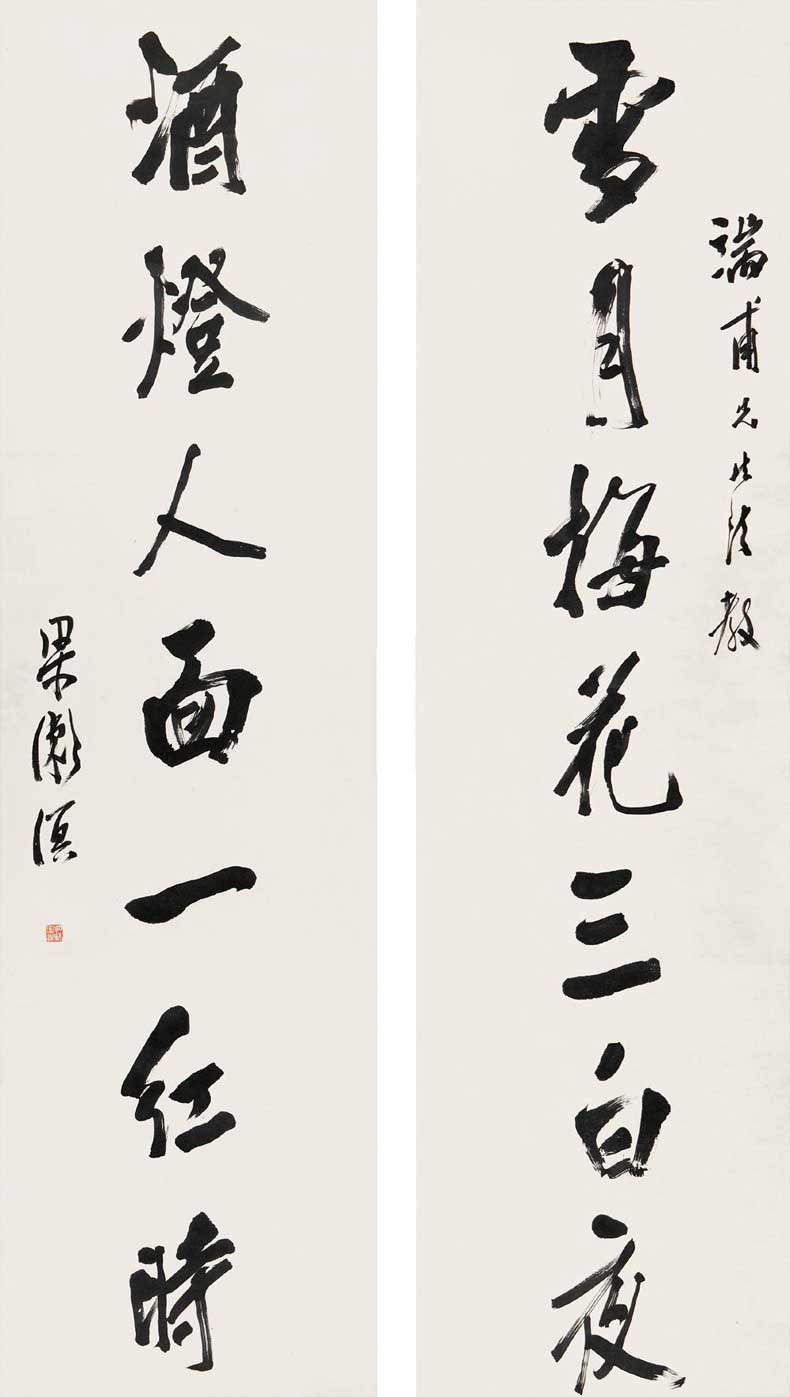 端甫兄法教
雪月梅花三白夜
酒燈人面一红時
梁漱溟